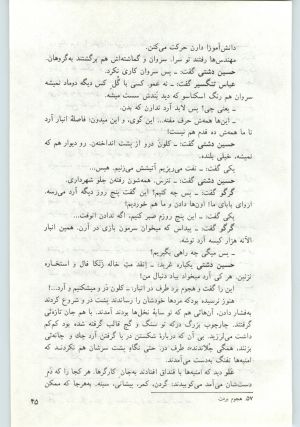 دانش‌آموزا دارن حرکت می‌کنن.
مهندس‌ها رفتند تو سرا. سروان و گماشته‌اش هم برگشتند به‌گروهان.
حسین دشتی گفت: ـ پس سروان کاری نکرد.
عباس تنگسیر گفت: ـ نه عمو. کسی با گُل کس دیگه دوماد نمیشه
سروان هم رنگ اسکناسو که دید بَندش سست میشه.
ـ یعنی چی؟ پس لابد آرد ندارن که بدن.
ـ این‌ها همش حرف مفته... این گوی، و این میدون؛ فاصلهٔ انبار آرد
تا ما همش ده قدم هم نیست!
حسین دشتی گفت: ـ کلون درو از پشت انداختند. رو دیوار هم که
نمیشه، خیلی بلنده.
یکی گفت: ـ نفت می‌ریزیم آتیشش می‌زنیم. هیس...
حسین دشتی گفت: ـ نترس، همه‌شون رفته‌ن جلو شهرداری.
گرگو گفت: ـ پس چه کنیم؟ این گفت پنج روز دیگه آرد می‌رسه.
ارزای بابای ما! اون‌ها دادن و ما هم خوردیم!
یکی گفت: ـ این پنج روزم صبر کنیم، اگه ندادن اونوقت...
گرگو گفت: ـ پیداس که میخوان سرمون بازی در آرن. همین انبار
الانه هزار کیسه آرد توشه.
ـ پس میگی چه راهی بگیریم؟
حسین دشتی یکباره غرید: ـ انقد مِث خاله زنکا فال و استخاره
نزنین. هر کی آرد میخواد بیاد دنبال من!
این را گفت و هجوم برد طرف در انبار. ـ کلون دَر و میشکنیم و آرد...!
هنوز نرسیده بودکه مردها خودشان را رساندند پشت در و شروع کردند
به‌فشار دادن، آن‌هائی هم که تو سایهٔ نخل‌ها بودند آمدند. با هم جان تازه‌ئی
گرفتند. چارچوب بزرگ درکه تو سنگ و گچ قالب گرفته شده بود کم‌کم
داشت می‌لرزید. بی آن که دربارهٔ شکستن در با گرفتن آرد چک و چانه‌ئی
بزنند، همگی چُلاندند طرف در. حتی نگاه پشت سرشان هم نکردند که
امنیه‌ها تفنگ به‌دست می‌آمدند.
غلو دید که امنیه‌ها با قنداق افتادند به‌جان کارگرها. هر کجا را که دَمِ
دست‌شان می‌آمد می‌کوبیدند: گردن، کمر، پیشانی، سینه. به‌هرجا که ممکن
۵۷. هجوم بردن
۴۵